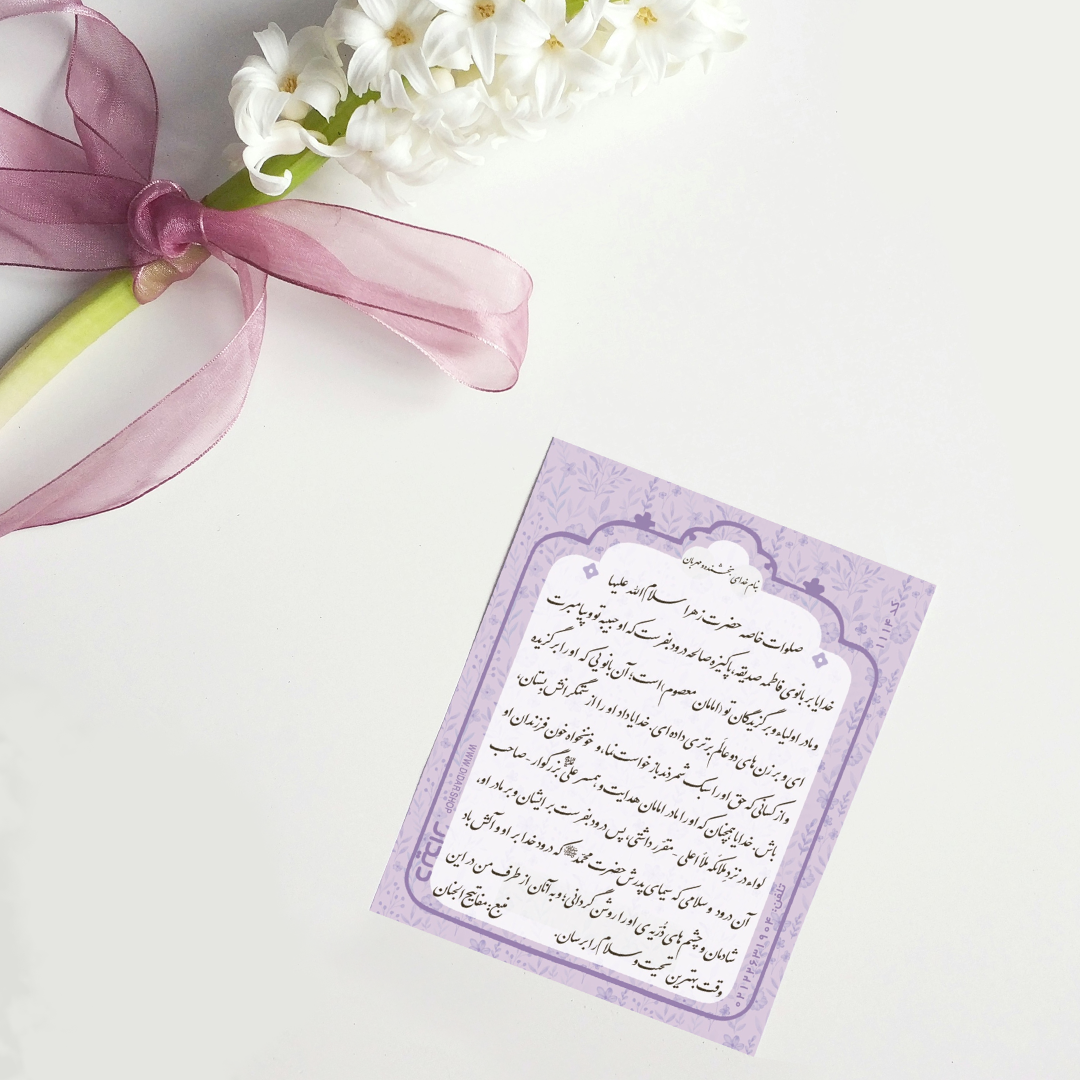 بنام خدای بخشنده و مهربان
صلوات خاصه حضرت زهرا سلام الله علیها
خدایا بر بانوی فاطمه صدیقه، پاکیزه صالحه درود بفرست که او حبیبه تو و پیامبرت
و مادر اولیاء و برگزیدگان تو (امامان معصوم) است؛ آن بانویی که او را برگزیده
ای و بر زن های دو عالم برتری داده ای، خدایا داد او را از ستمگرانش بستان،
و از کسانی که حق او را سبک شمردند باز خواست نما، و خونخواه خون فرزندان او
باش. خدایا همچنان که او را مادر امامان هدایت و همسر علی بزرگوار-صاحب
لواء در نزد ملائکه ملأ اعلی - مقرر داشتی، پس درود بفرست بر ایشان و بر مادر او،
آن درود و سلامی که سیمای پدرش حضرت محمد ﷺ که درود خدا بر او و آلش باد
شادمان و چشم های ذُرّیه ی او را روشن گردانی؛ و به آنان از طرف من در این
وقت بهترین تحیت و سلام را برسان.
منبع: مفاتیح الجنان
کد ۱۱۱۴
WWW.DIDAR.SHOP
دیدار
تلفن: ۰۲۱۲۲۶۳۱۹۰۴